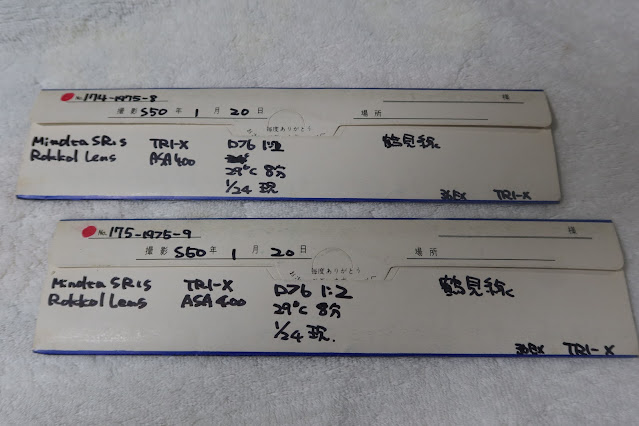 No. 174-1975-8 様
撮影 S50年 1月 20日 場所
毎度ありがとう
Minolta SRis TRI-X D76 1:2 鶴見線
Rokkol Lens ASA400
29°C 8分
1/24 現 36EX TRI-X
No. 175-1975-9 様
撮影 S50年 1月 20日 場所
毎度ありがとう
Minolta SRis TRI-X D76 1:2 鶴見線
Rokkol Lens ASA400 29°C 8分
1/24 現.
36EX TRI-X